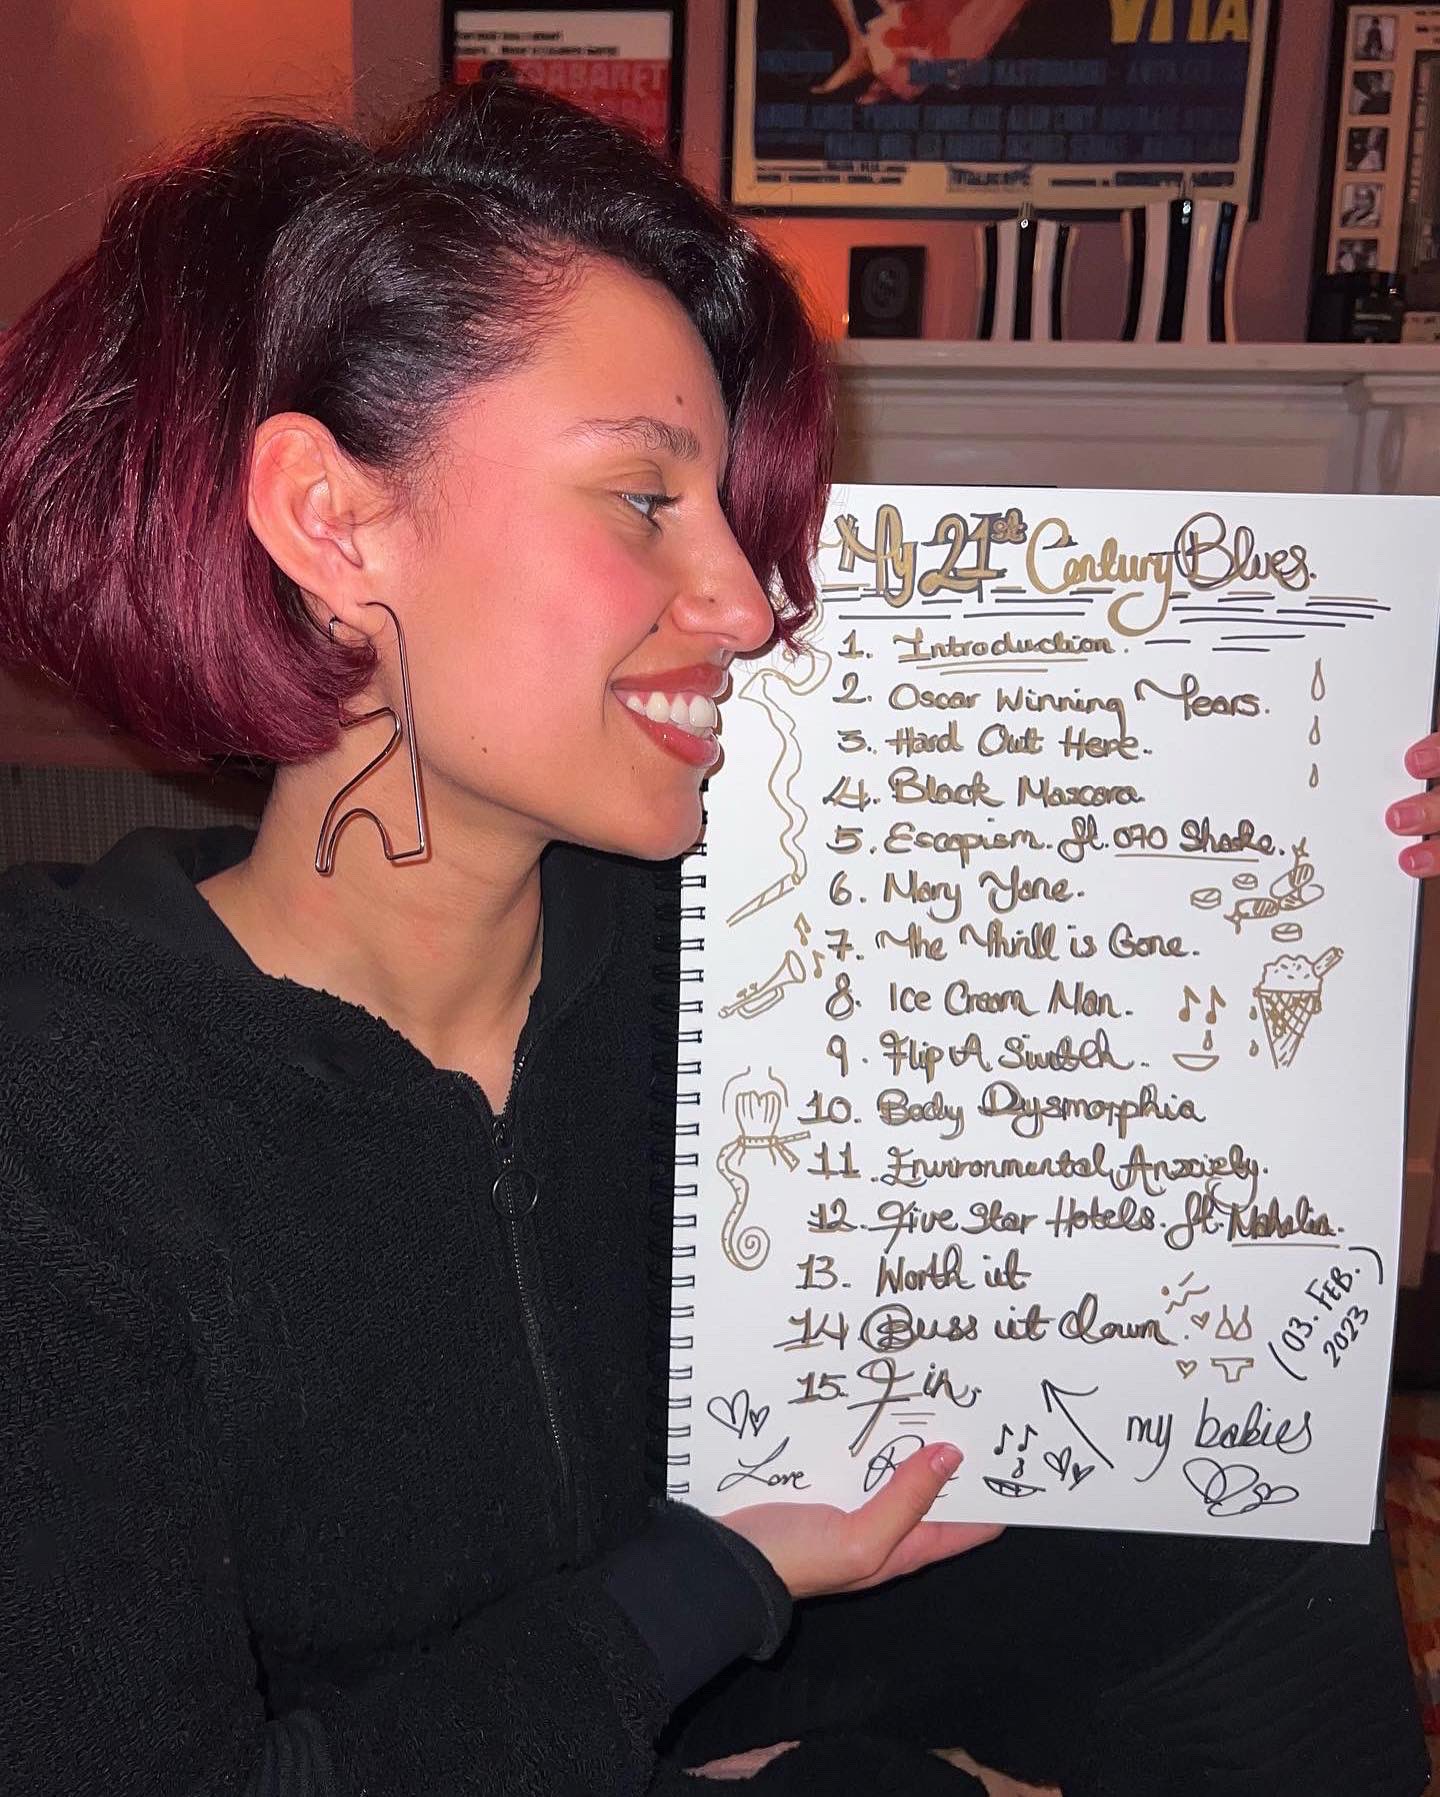 My 21st Century Blues.
1. Introduction.
2. Oscar Winning Tears.
3. Hard Out Here.
4. Black Mascara.
5. Escapism. ft. 070 Shake.
6. Mary Jane.
7. The Thrill is Gone.
8. Ice Cream Man.
9. Flip A Switch.
10. Body Dysmorphia
11. Environmental Anxiety.
12. Five Star Hotels. ft. Mahalia.
13. Worth it
14 Buss it down.
15. Fin.
(03. FEB. 2023)
my babies
Love
VITA